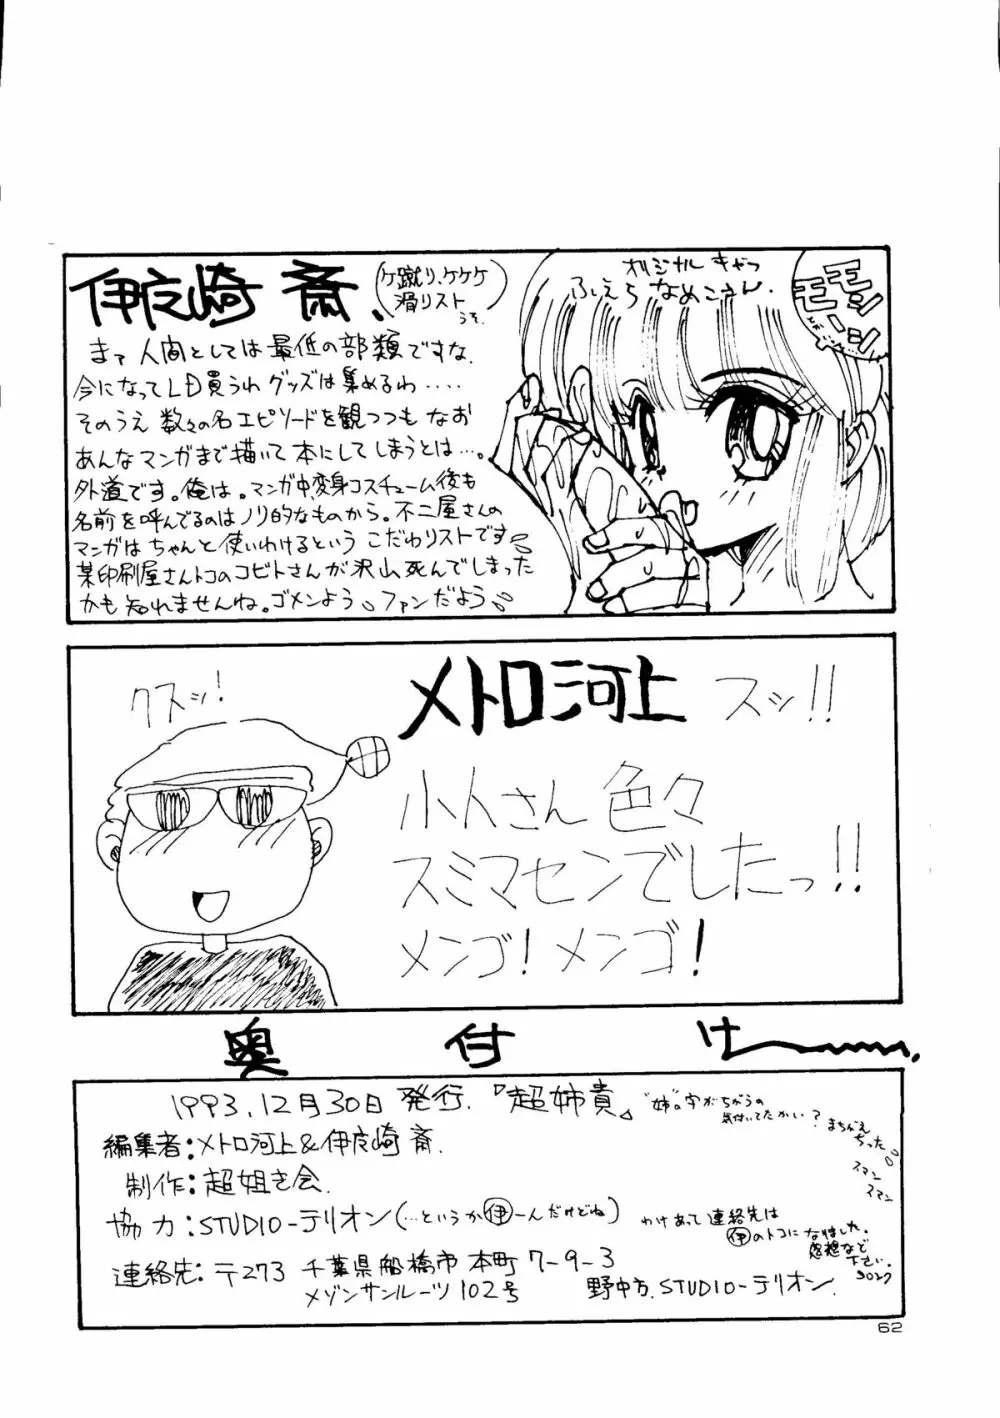 伊良崎 斎、
(ケ蹴り、ケケケ
滑リスト
うそ。
オリジナル キャラ
ふぇら なめこさん。
モシ
モーシ
まて 人間としては 最低の部類ですな。
今になって LD買うわ グッズは集めるわ‥‥
そのうえ 数々の名エピソードを観つつも なお
あんなマンガまで描いて本にしてしまうとは…。
外道です。俺は。マンガ中変身コスチューム後も
名前を呼んでるのはノリ的なものから。不二屋さんの
マンガは ちゃんと 使いわけるという こだわリストです。
某印刷屋さんトコのコビトさんが沢山死んでしまった
かも知れませんね。ゴメンよう。ファンだよう。
クスッ!
メトロ河上 スッ!!
小人さん 色々
スミマセンでしたっ!!
メンゴ! メンゴ!
奥 付 け
1993.12月30日 発行.『超姉貴』
"姉"の字がちがうの
気付いてたかい?
まちがえ
ちった。
スマン
スマン
編集者:メトロ河上&伊良崎 斎.
制作:超姐き会.
協力:STUDIO-テリオン(…というか㊉一人だけどね)
わけあって連絡先は
のトコになりました。
感想など
下さい。
連絡先:〒273 千葉県船橋市 本町 7-9-3
メゾンサンルーツ102号 野中方.STUDIO-テリオン.
62